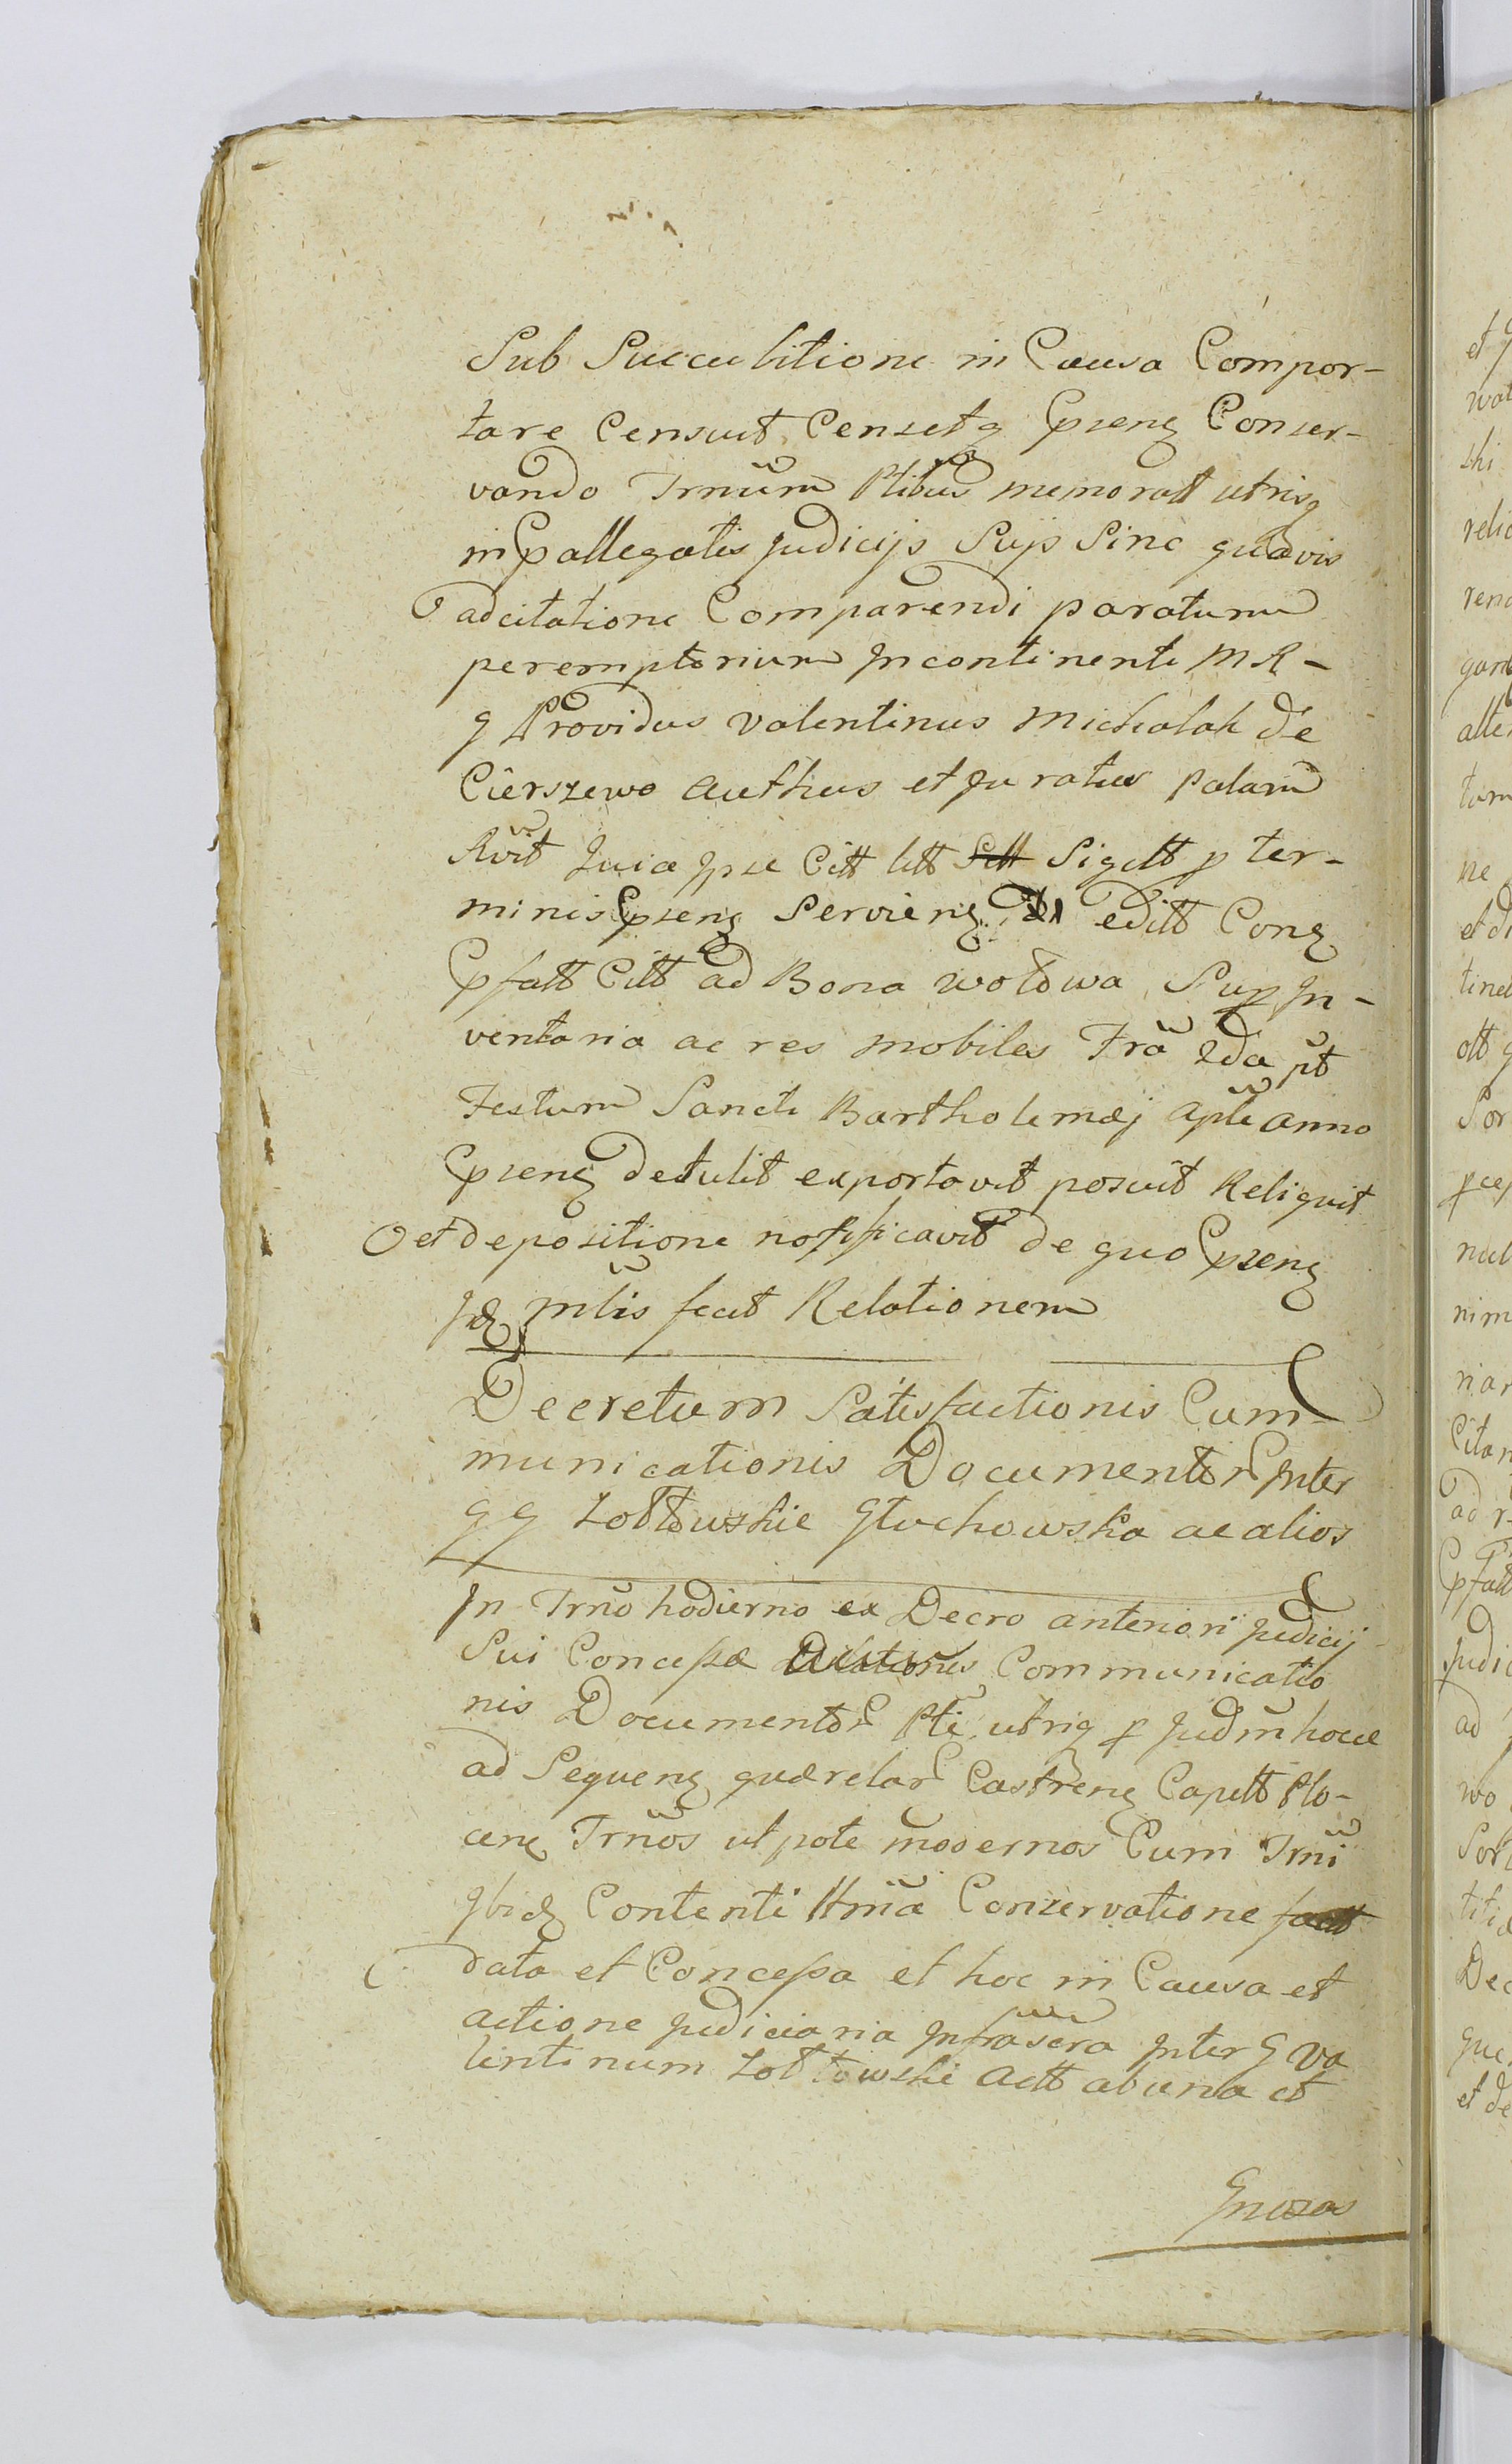 Sub Succubitione in Causa Compor-
tare Censuit Censetq pseng Conser-
vando Trnum Ptibus memoratt utrisq
in pallegatis Judicijs Suis Sine quavis
adcitatione Comparendi paratum
peremptorium Incontinenti MR-
q Providus Valentinus Michalak de
Cierszewo authus et Juratus palam
Rvit Quia Ipse Citt litt Sigilt p ter-
minis pseng Servieng editt Cong
pfatt Citt ad Bona Wołowa Sup In-
ventaria ac res mobiles Fra 2da pt
Festum Sancti Bartholemæj Apli anno
pseng detulit exportavit posuit Reliquit
et depositione notificavit de quo pseng
Idq Mlis fecit Relationem
Decretum Satisfactionis Cum-
municationis Documentor Inter
GG Zołtowskie Głuchowska ac alios
In Trno hodierno ex Decro anteriori Judicij
Sui Concessæ Communicatio
nis Documentor Pti utriq p Judm hocce
ad Sequeng quærelar Castreng Capitt Plo-
ceng Trnos utpote modernos Cum Trni
Ibidq Contenti Conservatione
data et Concessa et hoc in Causa et
actione Judiciaria Infrascra Inter G Va
lentinum Zołtowski Actt ab una et